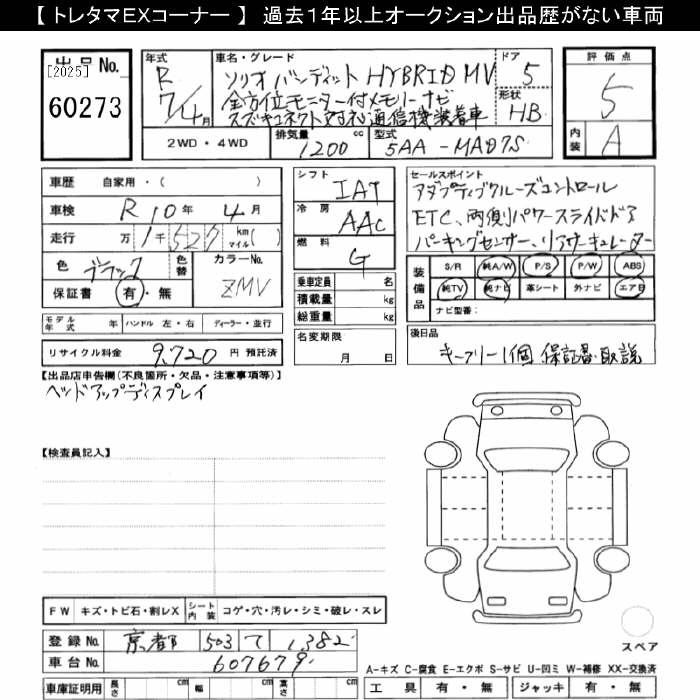 【 トレタマEXコーナー 】 過去1年以上オークション出品歴がない車両
出品No.
[2025]
60273
年式
R
7/4月
車名・グレード
ソリオ バンディット HYBRID MV
全方位モニター付メモリーナビ
スズキコネクト対応通信機装着車
ドア
5
形状
HB
評価点
5
内装
A
2WD・4WD
排気量
1200 cc
型式
5AA-MAD7S
車歴 自家用・( )
車検 R 10年 4月
走行 万 1千 527 km マイル( )
色 ブラック 色替 カラーNo. ZMV
保証書 有・無
モデル年式 年 ハンドル 左・右 ディーラー・並行
リサイクル料金 9,720 円 預託済
シフト
IAT
冷房
AAC
燃料
G
乗車定員 名
積載量 kg
総重量 kg
名変期限
月 日
セールスポイント
アダプティブクルーズコントロール
ETC、両側パワースライドドア
パーキングセンサー、リアサーキュレーター
装備品
S/R 純A/W P/S P/W ABS
純TV 純ナビ 革シート 外ナビ エアB
ナビ型番:
後日品
キーフリー1個 保証書・取説
【出品店申告欄(不良箇所・欠品・注意事項等)】
ヘッドアップディスプレイ
【検査員記入】
FW キズ・トビ石・割レX シート内装 コゲ・穴・汚レ・シミ・破レ・スレ
登録No. 京都 503 て 1382
車台No. 607679
車庫証明用 長さ cm 幅 cm 高さ cm
スペア
A-キズ C-腐食 E-エクボ S-サビ U-凹ミ W-補修 XX-交換済
工具 有・無 ジャッキ 有・無